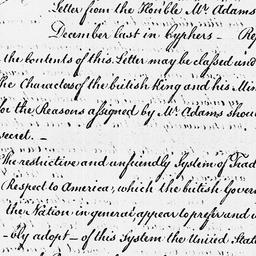 Letter from the Honble Mr. Adams
December last in Cyphers — Re
the contents of this Letter may be classed und
the Characters of the british King and his Min
for the Reasons assigned by Mr. Adams shou
secret. —
The restrictive and unfriendly System of Trad
Respect to America, which the british Gover
the Nation in general appear to prefer and
-bly adopt — of this System the United Stat